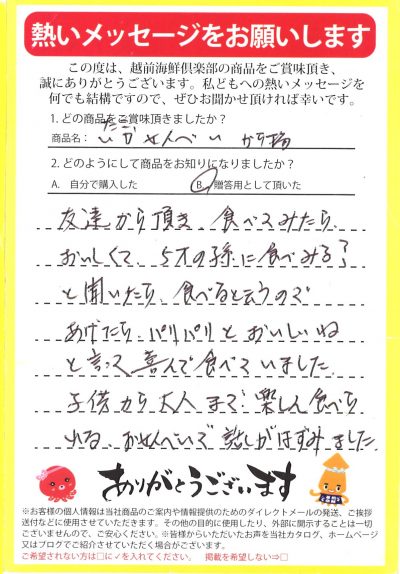 熱いメッセージをお願いします
この度は、越前海鮮倶楽部の商品をご賞味頂き、
誠にありがとうございます。私どもへの熱いメッセージを
何でも結構ですので、ぜひお聞かせ頂ければ幸いです。
1. どの商品をご賞味頂きましたか?
商品名: たこ いか せんべい
2. どのようにして商品をお知りになりましたか?
A. 自分で購入した B. 贈答用として頂いた
友達から頂き、食べてみたら
おいしくて、5才の孫に食べみる?
と聞いたら、食べると云うので
あげたら、パリパリとおいしいね
と言って喜んで食べていました。
子供から大人まで楽しく食べら
れる、おせんべいで話しがはずみました。
ありがとうございます
※お客様の個人情報は当社商品のご案内や情報提供のためのダイレクトメールの発送、ご挨拶
送付などに使用させていただきます。その他の目的に使用したり、外部に開示することは一切
ございませんので、ご安心ください。※皆様からいただいたお声を当社カタログ、ホームページ
又はブログでご紹介させていただく場合がございます。
ご希望されない方は□に✓を入れてください。 掲載を希望しない⇒□